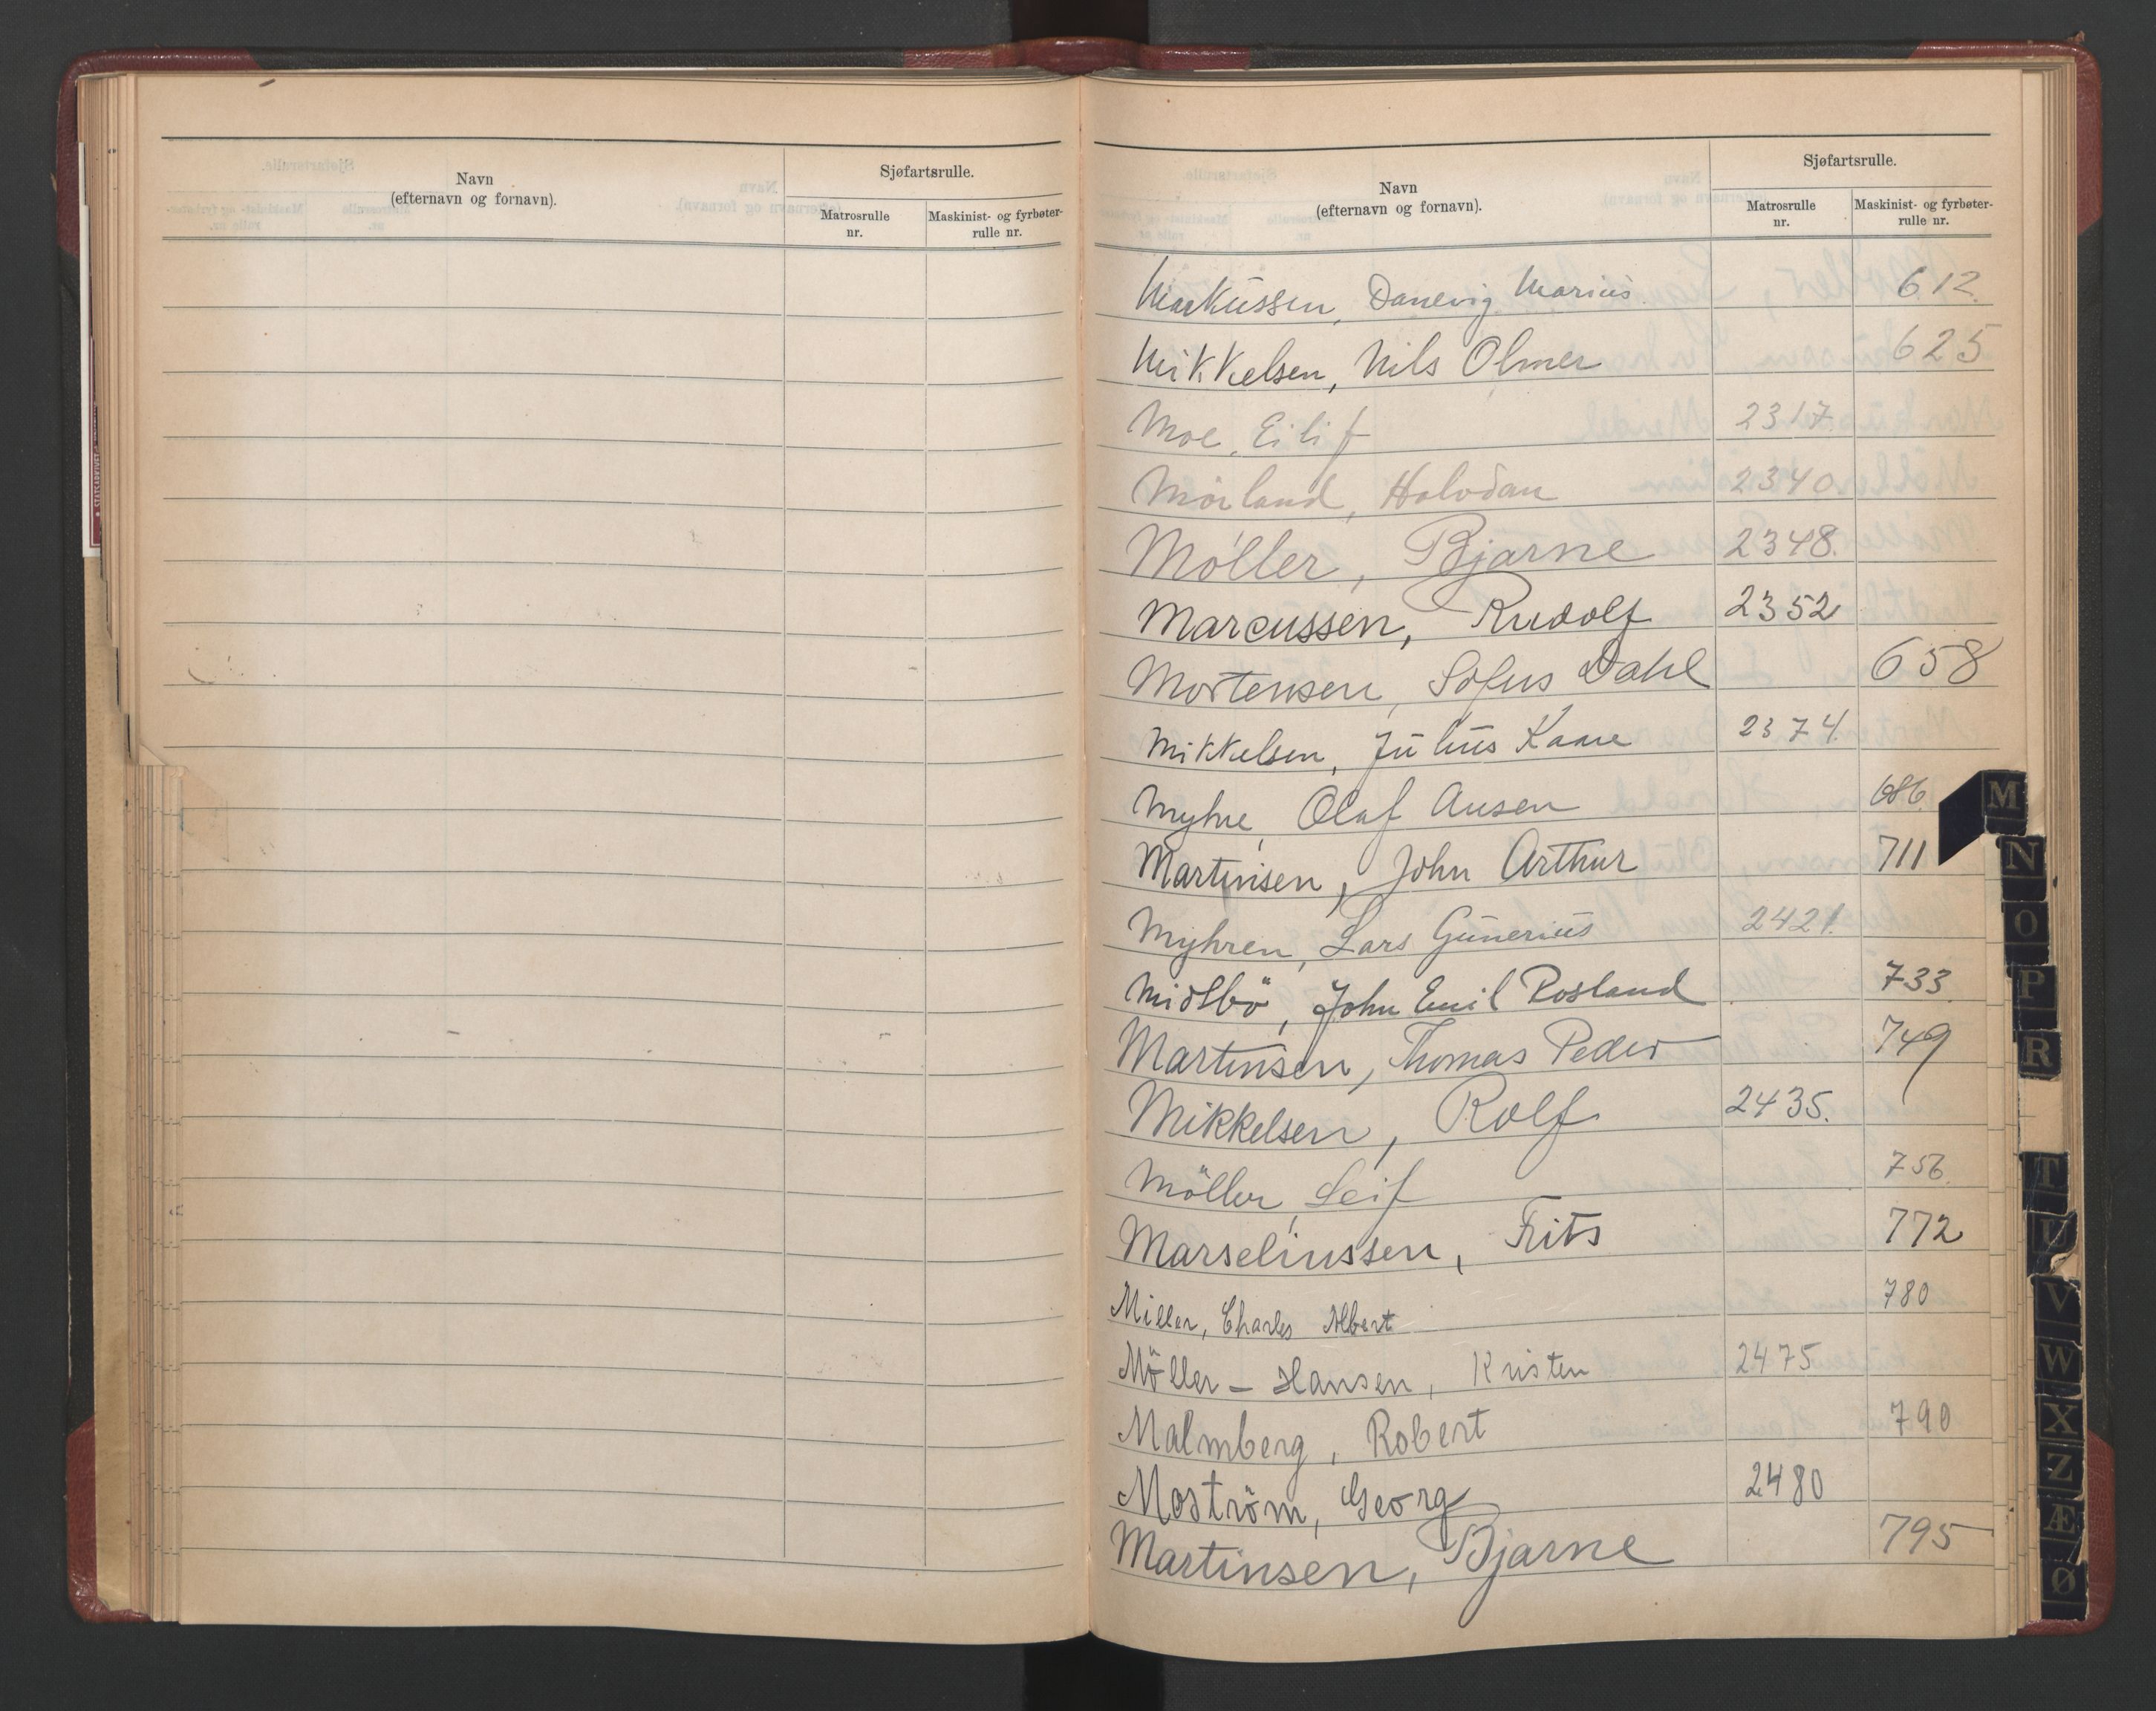 Navn
(efternavn og fornavn).
Sjøfartsrulle.
Matrosrulle
nr.
Maskinist- og fyrbøter-
rulle nr.
Navn
(efternavn og fornavn).
Sjøfartsrulle.
Matrosrulle
nr.
Maskinist- og fyrbøter-
rulle nr.
Markussen, Danevig Marius. 612.
Mikkelsen, Nils Olmer 625
Moe, Eilif 2317.
Mörland, Halvdan 2340
Möller, Bjarne 2348.
Marcussen, Rudolf 2352
Mortensen, Sofus Dahl 658
Mikkelsen, Julius Kaare 2374.
Myhre, Olaf Ansen 686.
Martinsen, John Arthur 711
Myhren, Lars Gunerius 2421.
Midtbö, John Emil Rosland 733.
Martinsen, Thomas Peder 749
Mikkelsen, Rolf 2435.
Möller, Leif 756.
Marseliussen, Frits 772
Miller, Charles Albert 780
Möller - Hansen, Kristen 2475
Malmberg, Robert 790
Moström, Georg 2480
Martinsen, Bjarne 795
M
N
O
P
R
T
U
V
W
X
Z
Æ
Ø